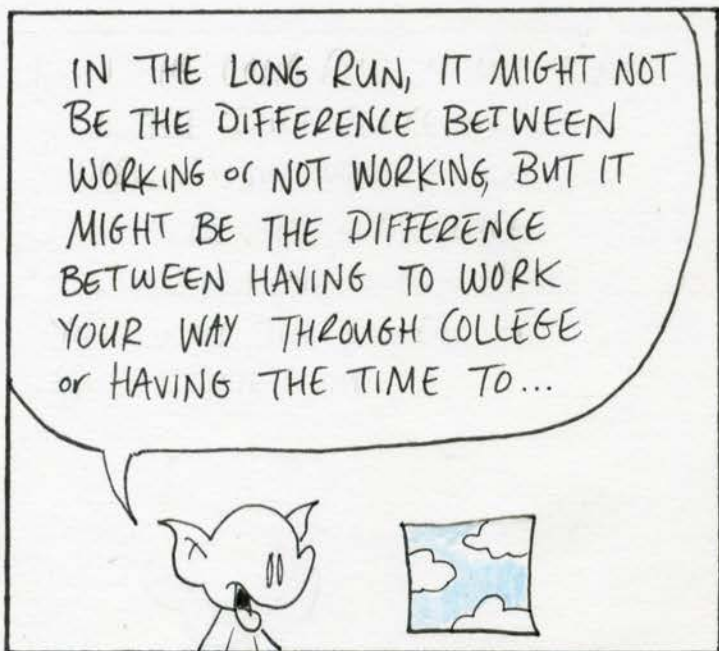 IN THE LONG RUN, IT MIGHT NOT
BE THE DIFFERENCE BETWEEN
WORKING or NOT WORKING, BUT IT
MIGHT BE THE DIFFERENCE
BETWEEN HAVING TO WORK
YOUR WAY THROUGH COLLEGE
or HAVING THE TIME TO...